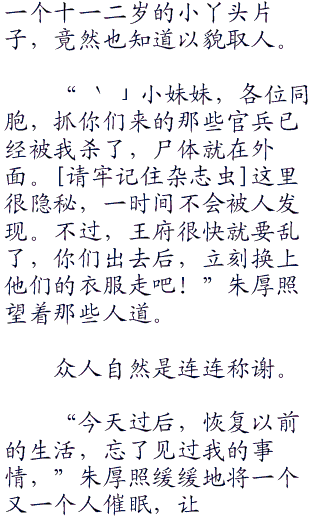 一个十一二岁的小丫头片
子，竟然也知道以貌取人。
“丶」小妹妹，各位同
胞，抓你们来的那些官兵已
经被我杀了，尸体就在外
面。[请牢记住杂志虫]这里
很隐秘，一时间不会被人发
现。不过，王府很快就要乱
了，你们出去后，立刻换上
他们的衣服走吧！”朱厚照
望着那些人道。
众人自然是连连称谢。
“今天过后，恢复以前
的生活，忘了见过我的事
情，”朱厚照缓缓地将一个
又一个人催眠，让